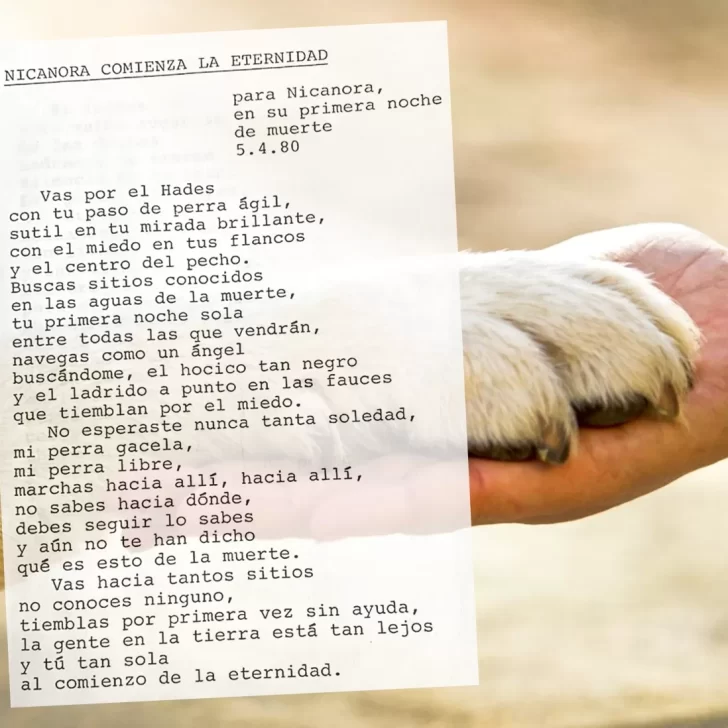 NICANORA COMIENZA LA ETERNIDAD
para Nicanora,
en su primera noche
de muerte
5.4.80
Vas por el Hades
con tu paso de perra ágil,
sutil en tu mirada brillante,
con el miedo en tus flancos
y el centro del pecho.
Buscas sitios conocidos
en las aguas de la muerte,
tu primera noche sola
entre todas las que vendrán,
navegas como un ángel
buscándome, el hocico tan negro
y el ladrido a punto en las fauces
que tiemblan por el miedo.
No esperaste nunca tanta soledad,
mi perra gacela,
mi perra libre,
marchas hacia allí, hacia allí,
no sabes hacia dónde,
debes seguir lo sabes
y aún no te han dicho
qué es esto de la muerte.
Vas hacia tantos sitios
no conoces ninguno,
tiemblas por primera vez sin ayuda,
la gente en la tierra está tan lejos
y tú tan sola
al comienzo de la eternidad.